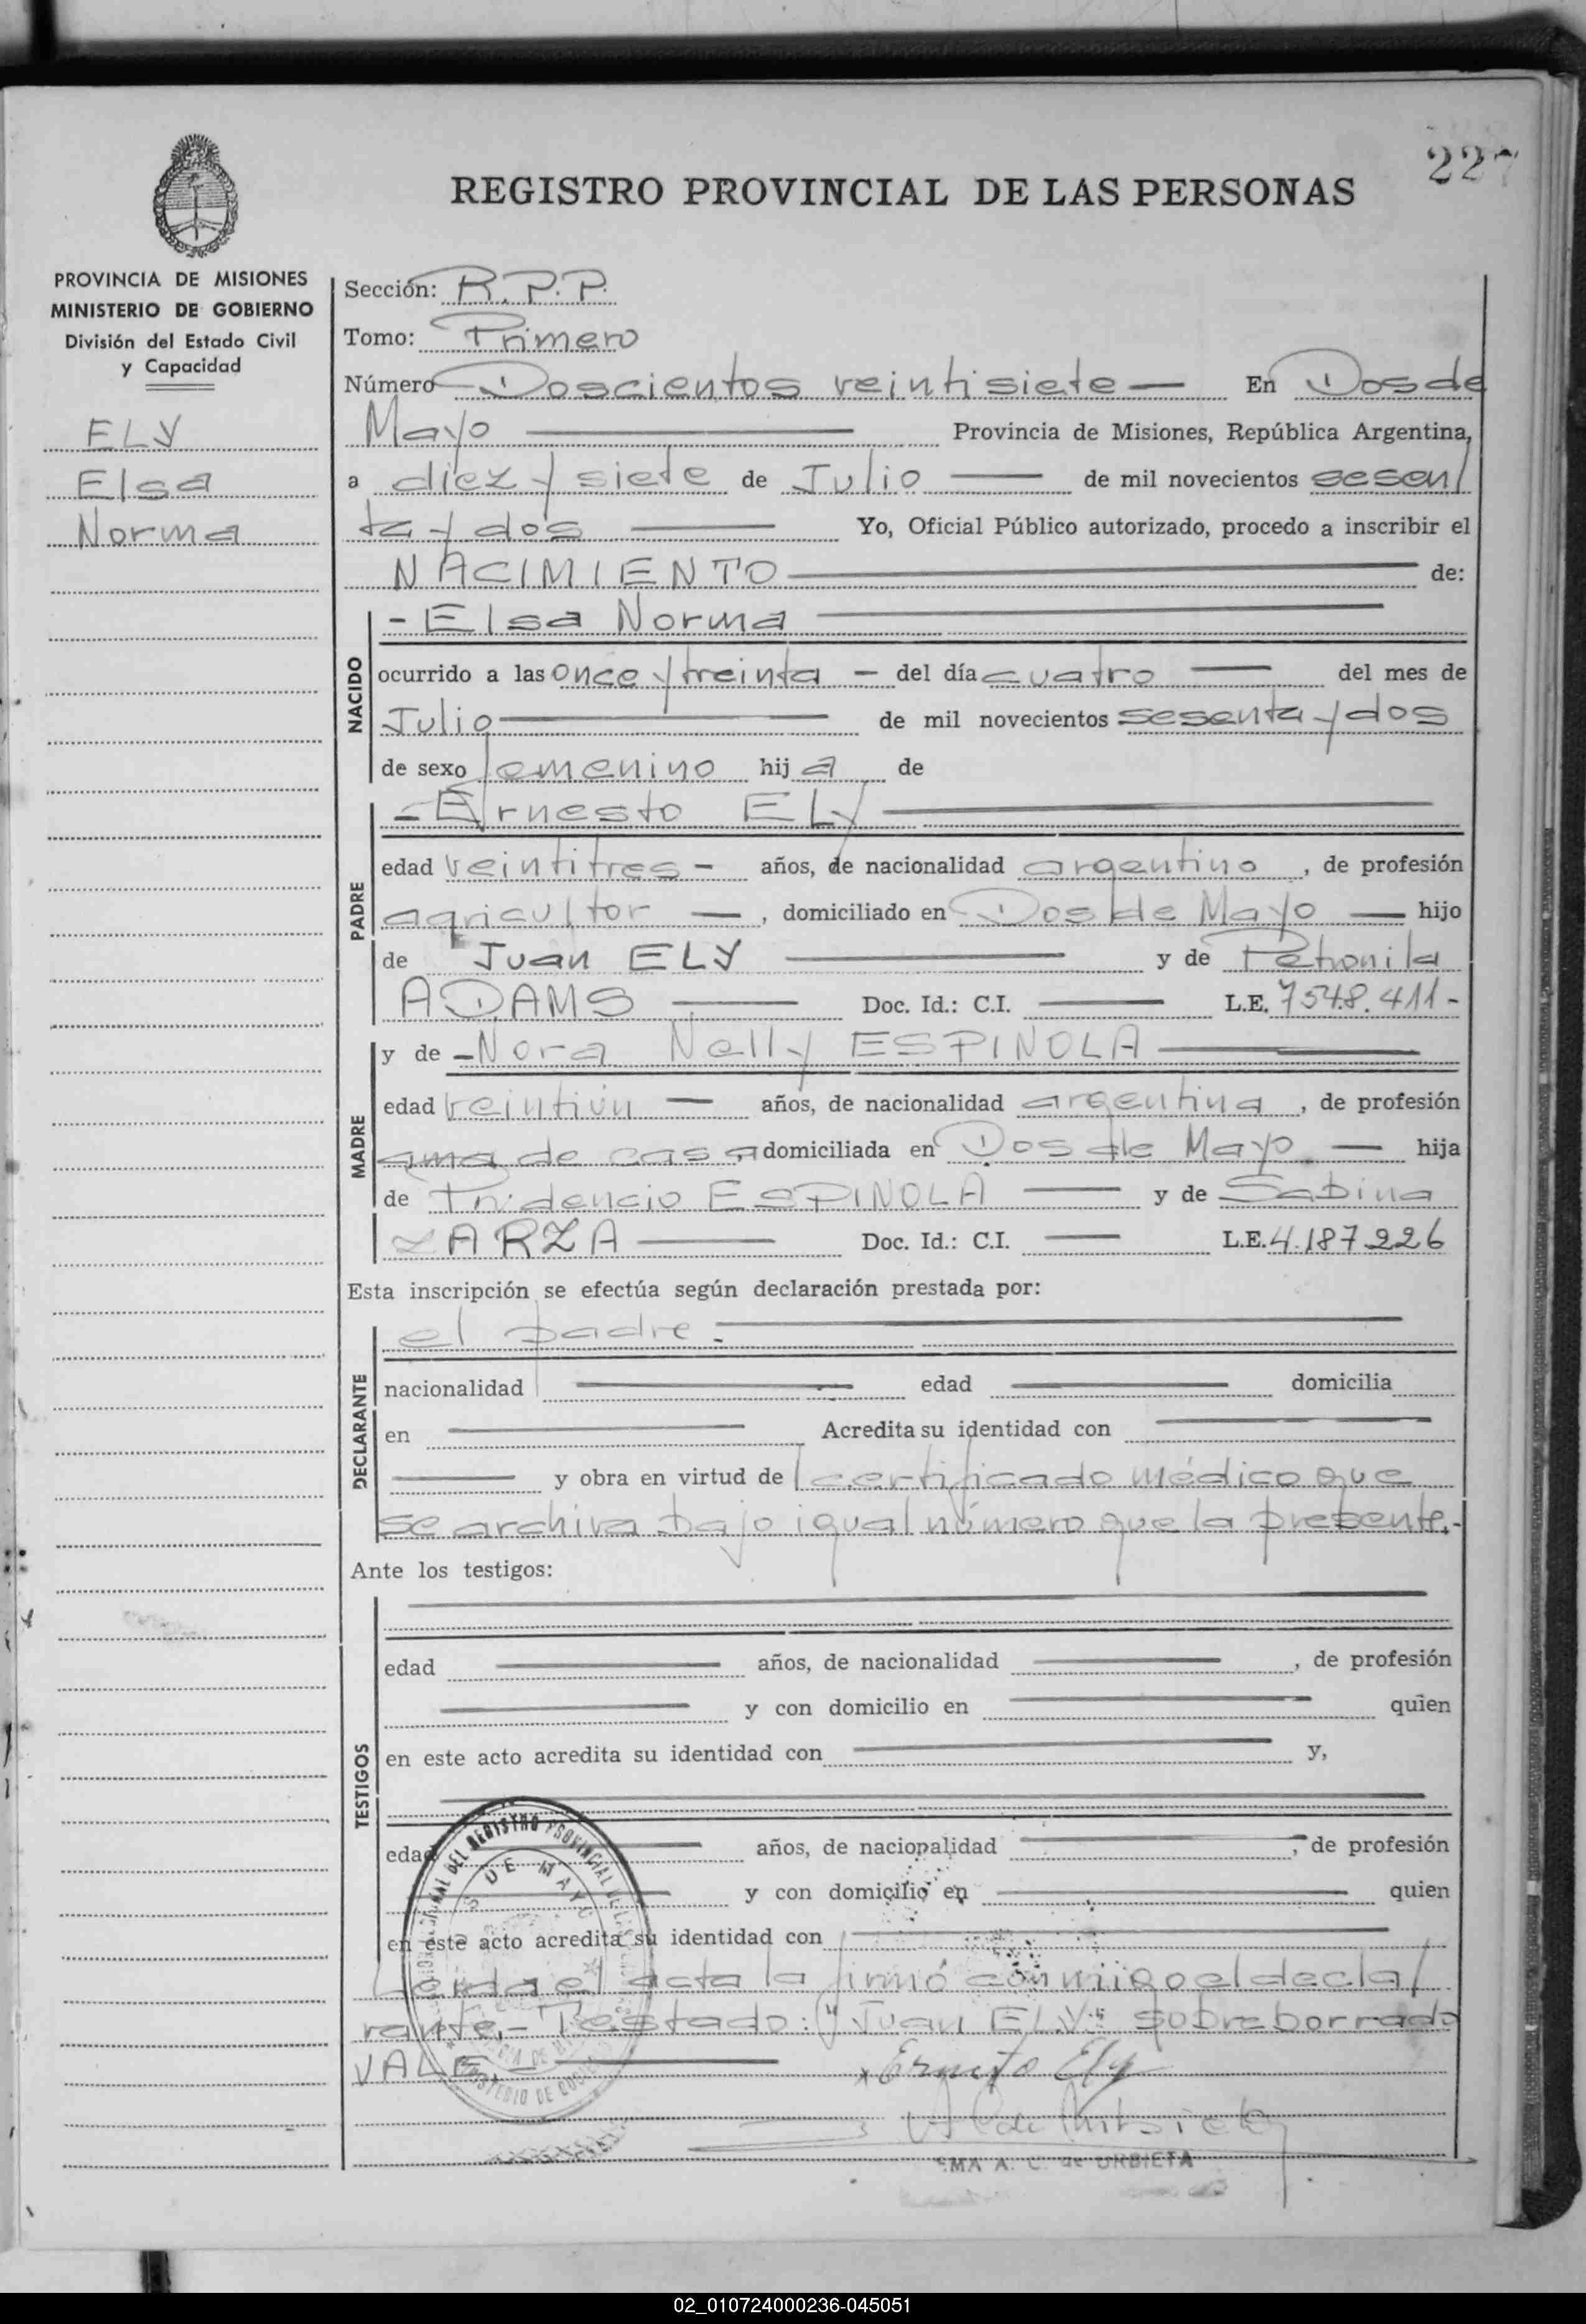 227
REGISTRO PROVINCIAL DE LAS PERSONAS
PROVINCIA DE MISIONES
MINISTERIO DE GOBIERNO
División del Estado Civil
y Capacidad
ELY
Elsa
Norma
Sección: R.P.P.
Tomo: Primero
Número Doscientos veintisiete — En Dos de
Mayo — Provincia de Misiones, República Argentina,
a diez y siete de Julio — de mil novecientos sesen/
ta y dos — Yo, Oficial Público autorizado, procedo a inscribir el
NACIMIENTO — de:
NACIDO
- Elsa Norma —
ocurrido a las once y treinta — del día cuatro — del mes de
Julio — de mil novecientos sesenta y dos
de sexo femenino hija de
PADRE
- Ernesto ELY —
edad veintitres - años, de nacionalidad argentino, de profesión
agricultor —, domiciliado en Dos de Mayo — hijo
de Juan ELY — y de Petronila
ADAMS — Doc. Id.: C.I. — L.E. 7548.411-
MADRE
y de - Nora Nelly ESPINOLA —
edad veintiún — años, de nacionalidad argentina, de profesión
ama de casa, domiciliada en Dos de Mayo — hija
de ESPINOLA — y de Sabina
ZARZA — Doc. Id.: C.I. — L.E. 4.187.226
Esta inscripción se efectúa según declaración prestada por:
DECLARANTE
el padre.—
nacionalidad — edad — domicilia
en — Acredita su identidad con —
— y obra en virtud de certificado médico que
se archiva bajo igual número que la presente.-
Ante los testigos:
TESTIGOS
edad — años, de nacionalidad —, de profesión
— y con domicilio en — quien
en este acto acredita su identidad con — y,
edad — años, de nacionalidad —, de profesión
— y con domicilio en — quien
en este acto acredita su identidad con —
Leída el acta la firmó conmigo el decla/
rante.- Testado: "Juan ELY" sobreborrado
VALE —
Ernesto Ely
A. C. de URBIETA
02_010724000236-045051